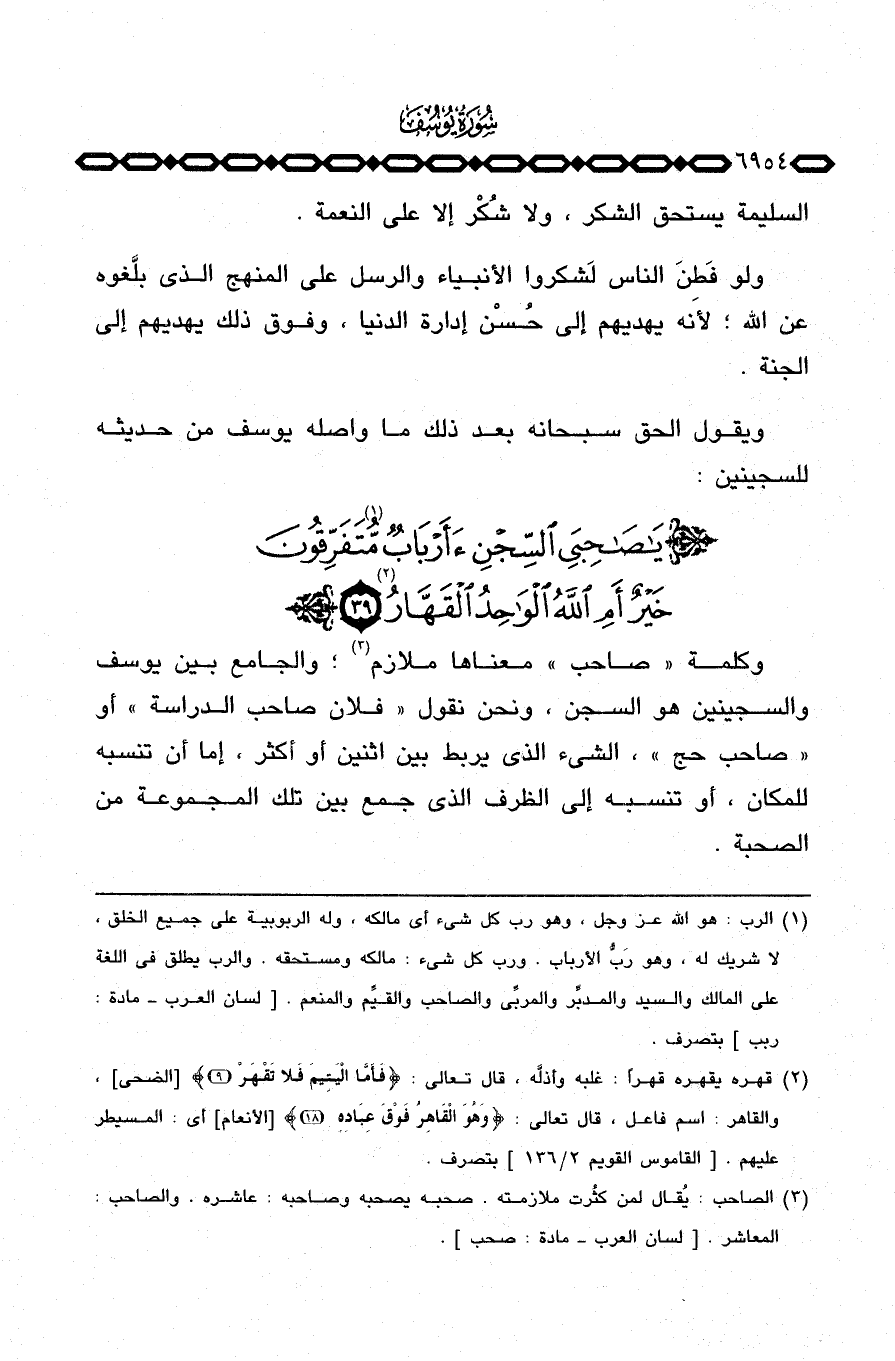 سُورَةُ يُوسُفَ
٦٩٥٤
السليمة يستحق الشكر ، ولا شُكْر إلا على النعمة .
ولو فَطِنَ الناس لَشكروا الأنبياء والرسل على المنهج الذى بلَّغوه
عن الله ؛ لأنه يهديهم إلى حُسْن إدارة الدنيا ، وفوق ذلك يهديهم إلى
الجنة .
ويقول الحق سبحانه بعد ذلك ما واصله يوسف من حديثه
للسجينين :
يَٰصَٰحِبَىِ ٱلسِّجْنِ ءَأَرْبَابٌ (١) مُّتَفَرِّقُونَ
خَيْرٌ أَمِ ٱللَّهُ ٱلْوَٰحِدُ ٱلْقَهَّارُ (٢) ٣٩
وكلمة « صاحب » معناها ملازم (٣) ؛ والجامع بين يوسف
والسجينين هو السجن ، ونحن نقول « فلان صاحب الدراسة » أو
« صاحب حج » ، الشىء الذى يربط بين اثنين أو أكثر ، إما أن تنسبه
للمكان ، أو تنسبه إلى الظرف الذى جمع بين تلك المجموعة من
الصحبة .
(١) الرب : هو الله عز وجل ، وهو رب كل شىء أى مالكه ، وله الربوبية على جميع الخلق ،
لا شريك له ، وهو رَبُّ الأرباب . ورب كل شىء : مالكه ومستحقه . والرب يطلق فى اللغة
على المالك والسيد والمدبِّر والمربِّى والصاحب والقيِّم والمنعم . [ لسان العرب - مادة :
ربب ] بتصرف .
(٢) قهره يقهره قهراً : غلبه وأذلَّه ، قال تعالى : ﴿فَأَمَّا الْيَتِيمَ فَلا تَقْهَرْ (٩)﴾ [الضحى] ،
والقاهر : اسم فاعل ، قال تعالى : ﴿وَهُوَ الْقَاهِرُ فَوْقَ عِبَادِهِ (١٨)﴾ [الأنعام] أى : المسيطر
عليهم . [ القاموس القويم ١٣٦/٢ ] بتصرف .
(٣) الصاحب : يُقال لمن كثُرت ملازمته . صحبه يصحبه وصاحبه : عاشره . والصاحب :
المعاشر . [ لسان العرب - مادة : صحب ] .